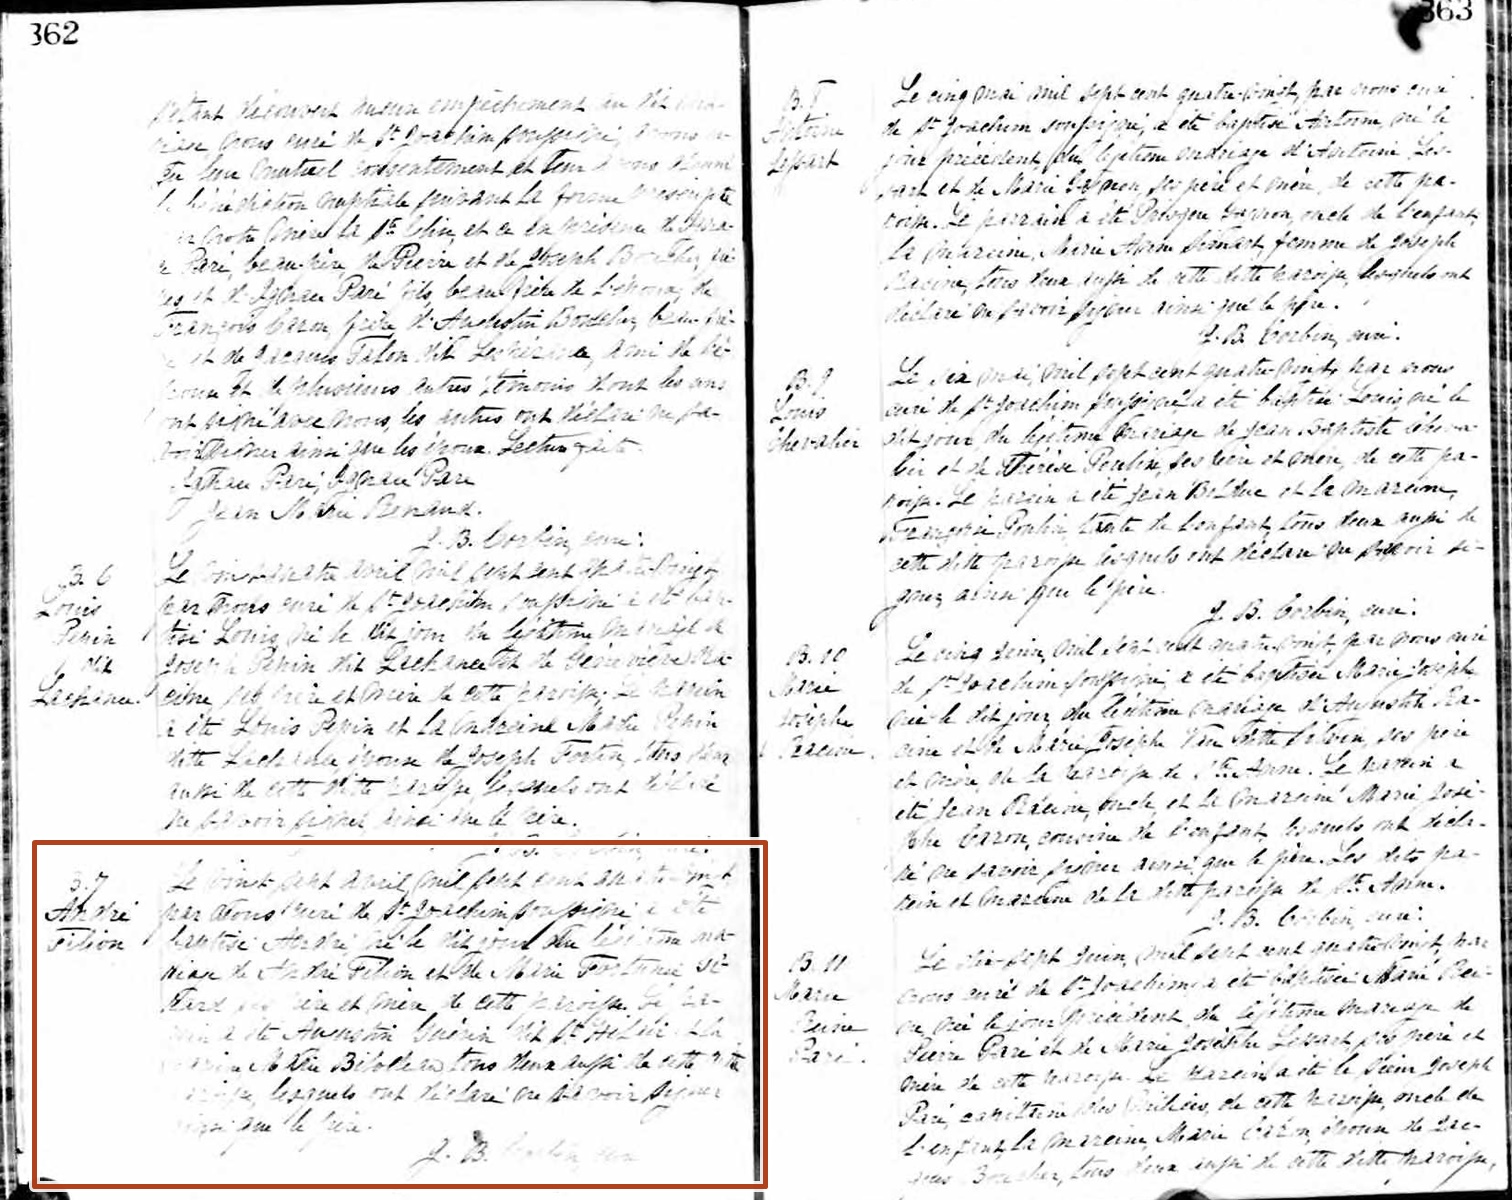 362
s'étant découvert aucun empêchement au dit ma-
riage nous curé de St. Joachim soussigné, avons re-
çu leur mutuel consentement et leur avons donné
la bénédiction nuptiale suivant la forme prescrite
par notre Mère la Ste. Eglise, et ce en présence de
Paré, beau-père, de Pierre et de Joseph Boucher, frè-
res et d'Ignace Paré fils, beau-frère de l'époux, de
François Caron, frère d'Augustin Boucher, beau-frè-
re et de Jacques Talon dit ami de l'é-
pouse et de plusieurs autres témoins dont les uns
ont signé avec nous, les autres ont déclaré ne sa-
voir signer ainsi que les époux. Lecture faite.
Paré, Ignace Paré
Jean Marie Renaud.
J. B. Corbin, curé.
B. 6
Louis
Pepin
dit
Lachance.
Le vingt-quatre avril, mil sept cent quatre-vingt,
par nous curé de St. Joachim soussigné a été bap-
tisé Louis, né le dit jour du légitime mariage de
Joseph Pepin dit Lachance et de Geneviève Ra-
cine, ses père et mère de cette paroisse. Le parrain
a été Louis Pepin et la marraine Marie Pepin
ditte Lachance épouse de Joseph Fortin, tous deux
aussi de cette ditte paroisse lesquels ont déclaré
ne savoir signer, ainsi que le père.
J. B. Corbin, curé.
B. 7
André
Filion
Le vingt-sept avril, mil sept cent quatre-vingt,
par nous curé de St. Joachim soussigné a été
baptisé André, né le dit jour du légitime ma-
riage de André Filion et de Marie Fortunée Si-
mard ses père et mère, de cette paroisse. Le pa-
rrain a été Augustin Guérin dit St. Hilair et la
marraine Marie Bilodeau, tous deux aussi de cette ditte
paroisse, lesquels ont déclaré ne savoir signer
ainsi que le père.
J. B. Corbin, curé
363
B. 8
Antoine
Lessart
Le cinq mai mil sept cent quatre-vingt, par nous curé
de St. Joachim soussigné, a été baptisé Antoine, né le
jour précédent, du légitime mariage d'Antoine Les-
sart et de Marie Gagnon, ses père et mère, de cette pa-
roisse. Le parrain a été Gagnon, oncle de l'enfant,
la marraine, Marie Anne Simart, femme de Joseph
Racine, tous deux aussi de cette ditte paroisse, lesquels ont
déclaré ne savoir signer ainsi que le père.
J. B. Corbin, curé.
B. 9
Louis
Chevalier
Le six mai, mil sept cent quatre-vingt, par nous
curé de St. Joachim soussigné a été baptisé Louis, né le
dit jour, du légitime mariage de Jean Baptiste Cheva-
lier et de Thérèse Poulin, ses père et mère, de cette pa-
roisse. Le parrain a été Jean Bolduc et la marraine,
Françoise Poulin, tante de l'enfant, tous deux aussi de
cette ditte paroisse lesquels ont déclaré ne savoir si-
gner, ainsi que le père.
J. B. Corbin, curé.
B. 10
Marie
Josephe
Racine
Le cinq juin, mil sept cent quatre-vingt, par nous curé
de St. Joachim soussigné, a été baptisée Marie Josephe
née le dit jour, du légitime mariage d'Augustin Ra-
cine et de Marie Josephe ditte ses père
et mère, de la paroisse de Ste. Anne. Le parrain a
été Jean Racine, oncle, et la marraine Marie José-
phe Caron, cousine de l'enfant, lesquels ont décla-
ré ne savoir signer ainsi que le père. Les dits pa-
rrain et marraine de la ditte paroisse de Ste. Anne.
J. B. Corbin, curé.
B. 11
Marie
Reine
Paré.
Le dix-sept juin, mil sept cent quatre-vingt, par
nous curé de St. Joachim, a été baptisée Marie Rei-
ne, née le jour précédent, du légitime mariage de
Pierre Paré et de Marie Josephte Lessart, ses père et
mère de cette paroisse. Le parrain a été le Sieur Joseph
Paré, capitaine des milices, de cette paroisse, oncle de
l'enfant, la marraine, Marie Caron, épouse de Jac-
ques Boucher, tous deux aussi de cette ditte paroisse,